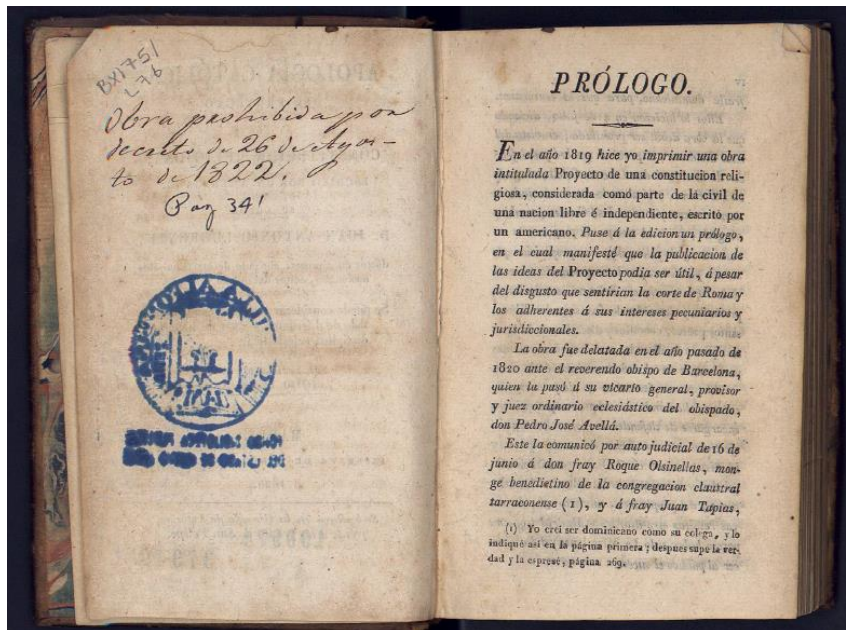 BX1751
L76
Obra prohibida por
decreto de 26 de Agos-
to de 1822.
Pag 341
PRÓLOGO.
En el año 1819 hice yo imprimir una obra
intitulada Proyecto de una constitucion reli-
giosa, considerada como parte de la civil de
una nacion libre é independiente, escrito por
un americano. Puse á la edicion un prólogo,
en el cual manifesté que la publicacion de
las ideas del Proyecto podia ser útil, á pesar
del disgusto que sentirian la corte de Roma y
los adherentes á sus intereses pecuniarios y
jurisdiccionales.
La obra fue delatada en el año pasado de
1820 ante el reverendo obispo de Barcelona,
quien la pasó á su vicario general, provisor
y juez ordinario eclesiástico del obispado,
don Pedro José Avellá.
Este la comunicó por auto judicial de 16 de
junio á don fray Roque Olsinellas, mon-
ge benedictino de la congregacion claustral
tarraconense (1), y á fray Juan Tapias,
(1) Yo crei ser dominicano como su colega, y lo
indiqué asi en la página primera; despues supe la ver-
dad y la espresé, página 269.